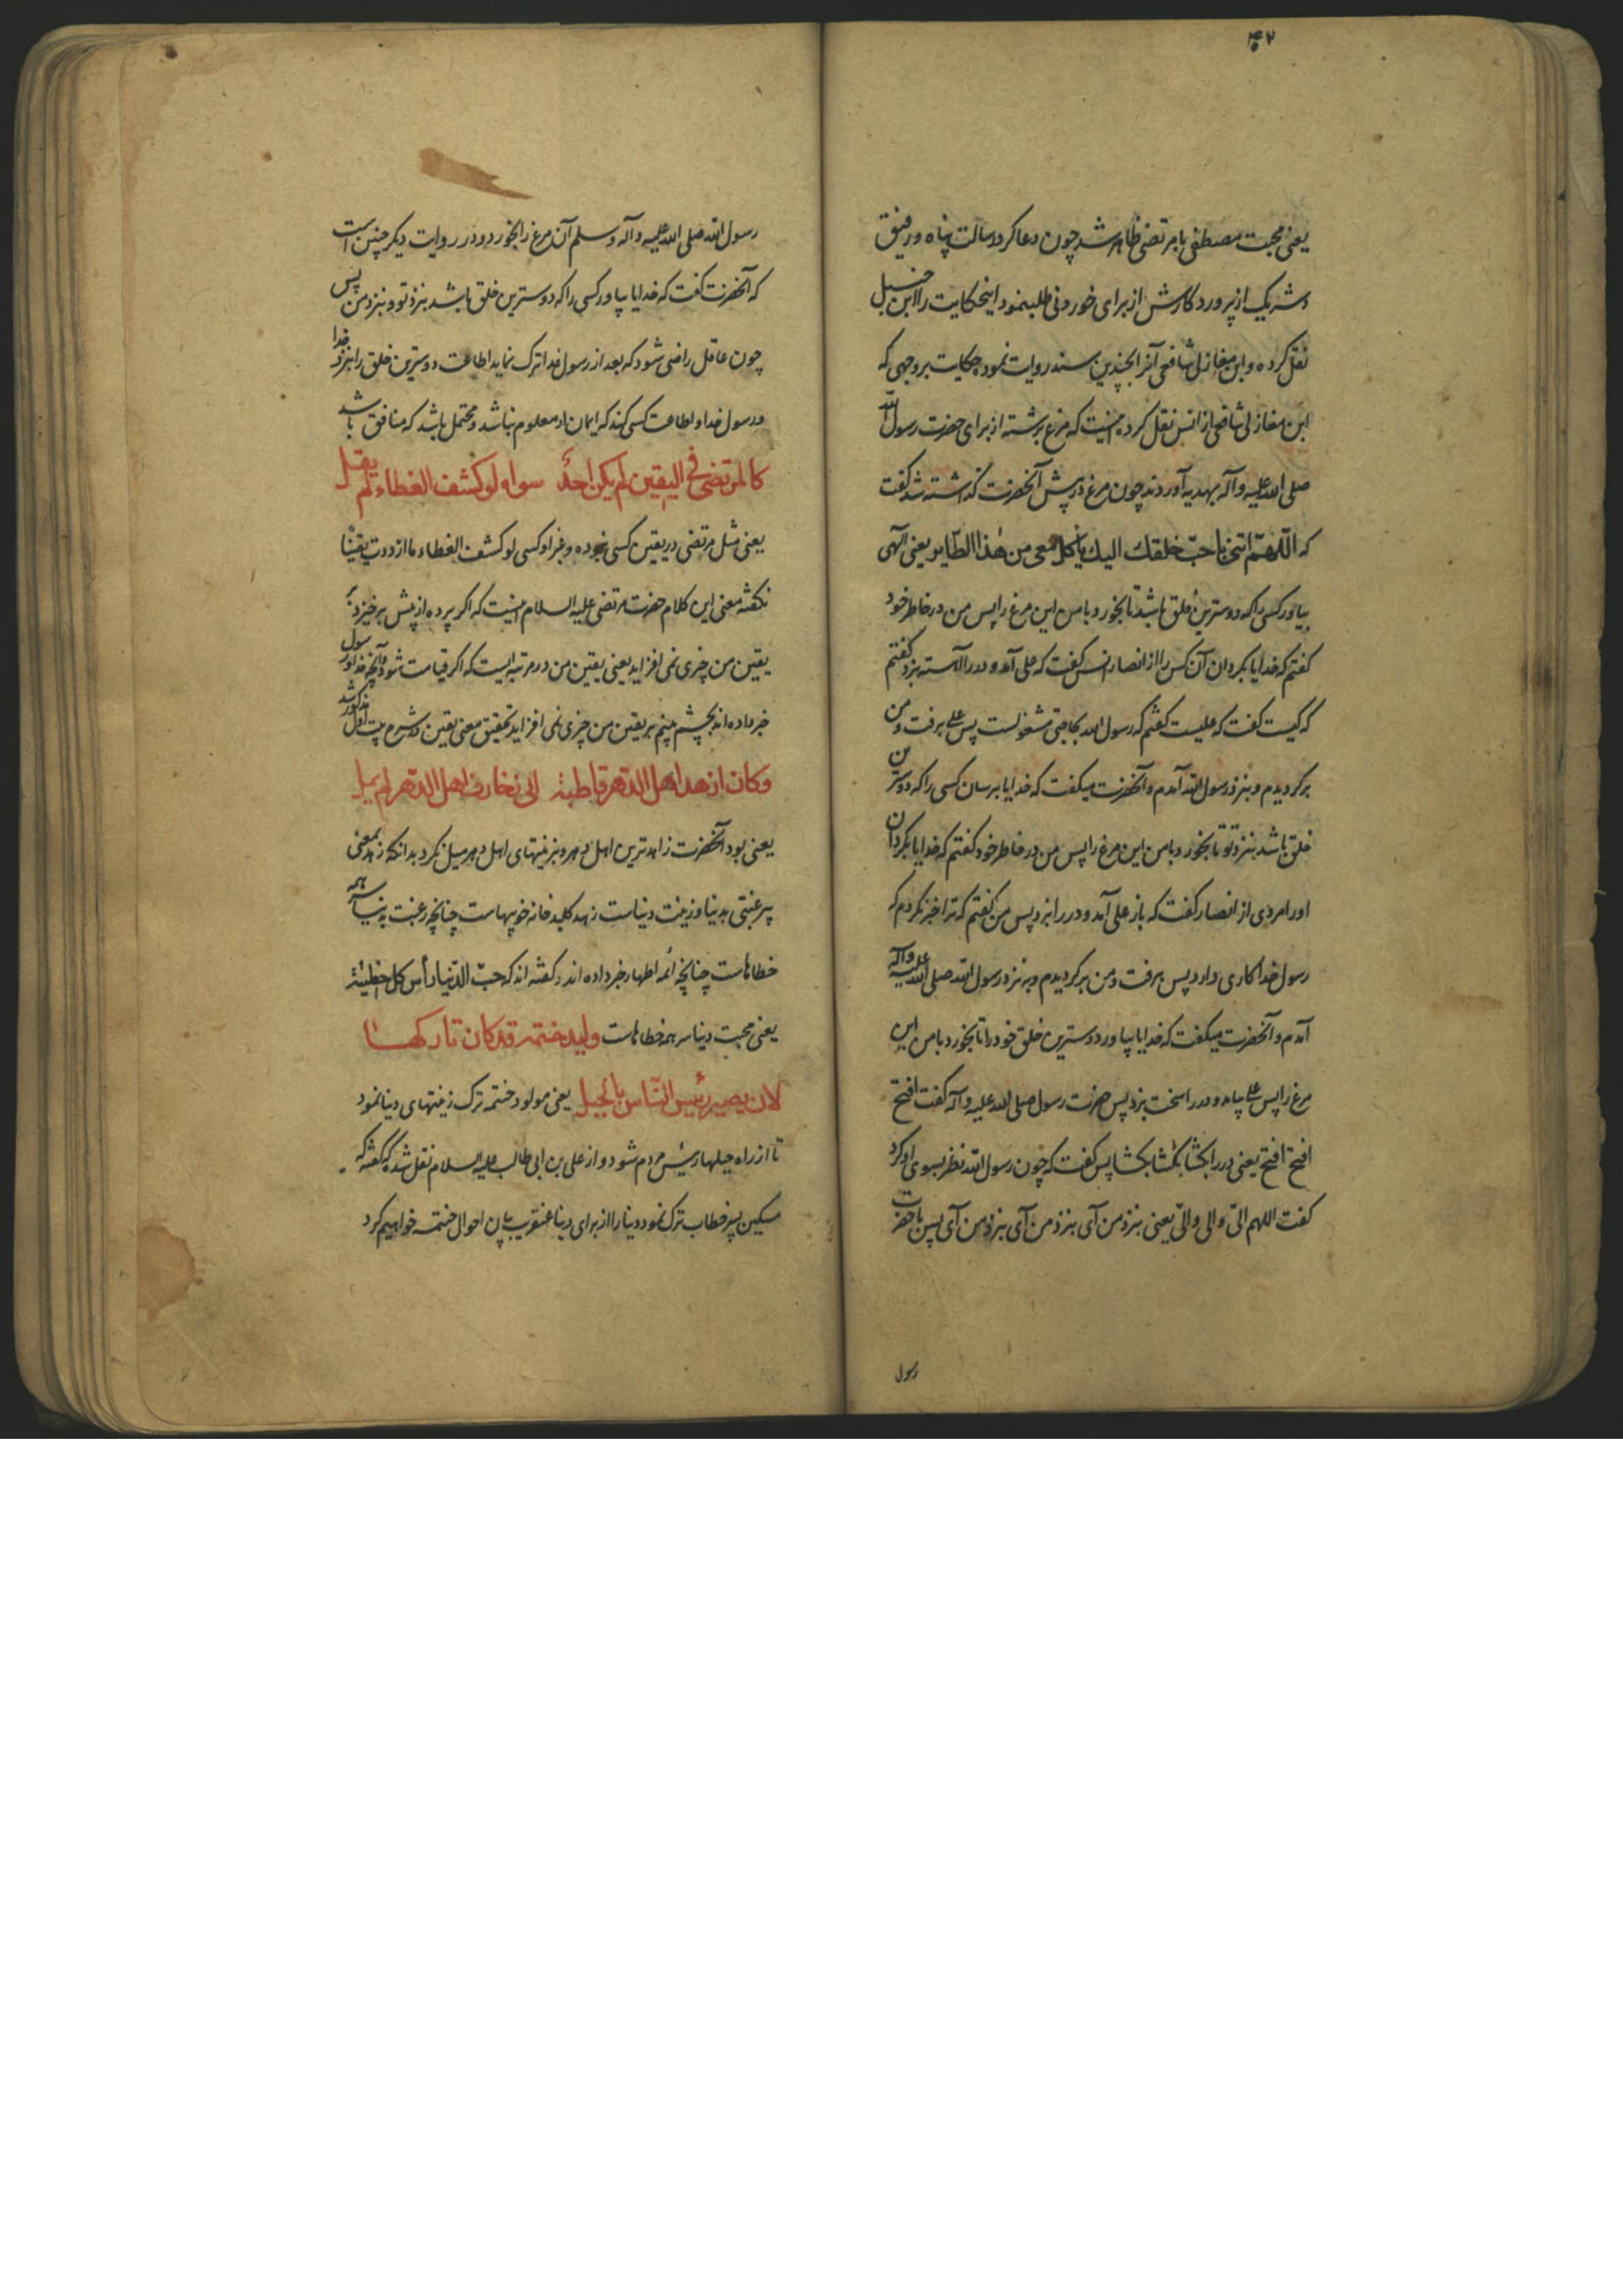 ۴۲
یعنی محبت مصطفی با مرتضی ظاهر شد چون دعا کرد رسالت پناه و رفیق
و شریک از پروردکارش از برای خوردنی طلب نمود اینحکایت را ابن حنبل
نقل کرده و ابن مغازلی شافعی آنرا بچندین سند روایت نموده حکایت بروجهی که
ابن مغازلی شافعی از انس نقل کرده اینست که مرغ برشته از برای حضرت رسول الله
صلی الله علیه و آله بهدیه آوردند چون مرغ در پیش آنحضرت گذاشته شد کفت
که اللّهمّ اتنی باحبّ خلقك الیك یاکل معی من هذا الطّایر یعنی الهی
بیاور کسی را که دوسترین خلق باشد تا بخورد با من این مرغ را پس من در خاطر خود
کفتم که خدایا بکردان آن کس را از انصار انس کفت که علی آمد و در را آهسته بزد کفتم
که کیست کفت که علیست کفتم که رسول الله بحاجتی مشغولست پس علی برفت و من
برکردیدم و بنزد رسول الله آمدم و آنحضرت میکفت که خدایا برسان کسی را که دوسترین
خلق باشد بنزد تو تا بخورد با من این مرغ را پس من در خاطر خود کفتم که خدایا بکردان
اورا مردی از انصار کفت که باز علی آمد و در را بزد پس من کفتم که ترا خبر نکردم که
رسول خدا کاری دارد پس برفت و من برکردیدم و به نزد رسول الله صلی الله علیه وآله
آمدم و آنحضرت میکفت که خدایا بیاور دوسترین خلق خود را تا بخورد با من این
مرغ را پس علی بیامد و در را سخت بزد پس حضرت رسول صلی الله علیه و آله کفت افتح
افتح افتح یعنی در را بکشا بکشا بکشا پس کفت که چون رسول الله نظر بسوی او کرد
کفت اللهم الیّ والی والیّ یعنی بنزد من آی بنزد من آی بنزد من آی پس با حضرت
رسول
رسول الله صلی الله علیه و آله و سلم آن مرغ را بخورد و در روایت دیکر چنین است
که آنحضرت کفت که خدایا بیاور کسی را که دوسترین خلق باشد بنزد تو و بنزد من پس
چون عاقل راضی شود که بعد از رسول خدا ترک نماید اطاعت دوسترین خلق را بنزد خدا
و رسول خدا و اطاعت کسی کند که ایمان او معلوم نباشد و محتمل باشد که منافق باشد
کالمرتضی فی الیقین لم یکن احدٌ سواه لو کشف الغطاء لم یقل
یعنی مثل مرتضی در یقین کسی نبوده و غیر او کسی لو کشف الغطاء ما ازددت یقینًا
نکفته معنی این کلام حضرت مرتضی علیه السلام اینست که اکر پرده از پیش برخیزد بر
یقین من چیزی نمی افزاید یعنی یقین من در مرتبه ایست که اکر قیامت شود و آنچه خدا و رسول
خبر داده اند بچشم ببینم بر یقین من چیزی نمی افزاید تحقیق معنی یقین در شرح بیت اول مذکور شد
وکان ازهد اهل الدّهر قاطبة الی زخارف اهل الدّهر لم یمل
یعنی بود آنحضرت زاهدترین اهل دهر و بزینتهای اهل دهر میل نکرد بدانکه زهد بمعنی
بیرغبتی بدنیا و زینت دنیاست زهد کلید خانه خوبیهاست چنانچه رغبت بدنیا سر همه
خطاهاست چنانچه ائمه اطهار خبر داده اند و کفته اند که حبّ الدّنیا رأس کل خطیئة
یعنی محبت دنیا سر همه خطاهاست ولید ختمه قد کان تارکها
لان یصیر رئیس النّاس بالحیل یعنی مولود ختمه ترک زینتهای دنیا نمود
تا از راه حیلها رئیس مردم شود و از علی بن ابی طالب علیه السلام نقل شده که کفته که
مسکین پسر خطاب ترک نمود دنیا را از برای دنیا عنقریب بیان احوال ختمه خواهیم کرد